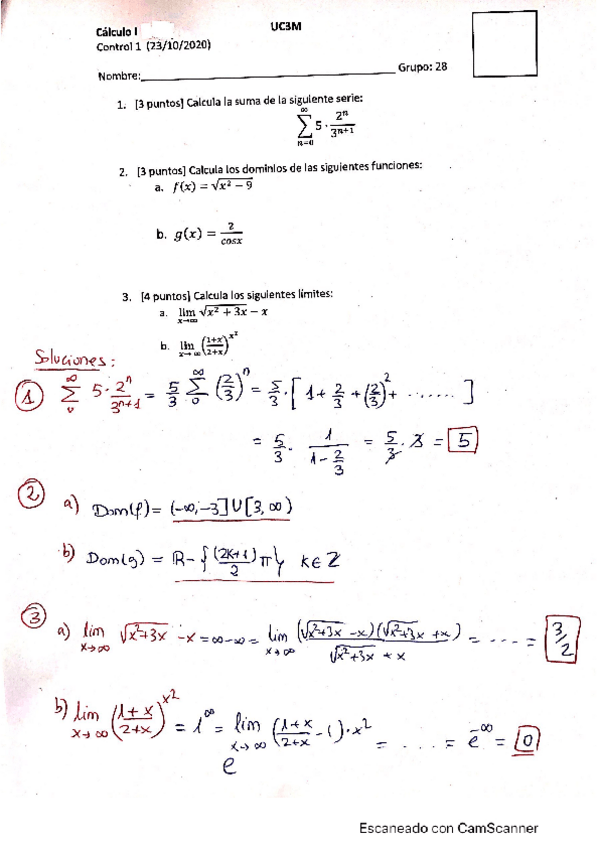 Cálculo I
UC3M
Control 1 (23/10/2020)
Nombre:____________________ Grupo: 28
1. [3 puntos] Calcula la suma de la siguiente serie:
∑_{n=0}^{∞} 5 · 2^n / 3^{n+1}
2. [3 puntos] Calcula los dominios de las siguientes funciones:
a. f(x) = √(x² − 9)
b. g(x) = 2 / cosx
3. [4 puntos] Calcula los siguientes límites:
a. lim_{x→∞} √(x² + 3x) − x
b. lim_{x→∞} ((1+x)/(2+x))^{x²}
Soluciones:
1 ∑_{0}^{∞} 5·2^n / 3^{n+1} = 5/3 ∑_{0}^{∞} (2/3)^n = 5/3 · [1 + 2/3 + (2/3)² + ......]
= 5/3 · 1 / (1 − 2/3) = 5/3 · 3 = 5
2 a) Dom(f) = (-∞,-3] U [3, ∞)
b) Dom(g) = R - {(2k+1)/2 π} k∈Z
3 a) lim_{x→∞} √(x²+3x) - x = ∞-∞ = lim_{x→∞} (√(x²+3x) - x)(√(x²+3x) + x) / (√(x²+3x) + x) = .... = 3/2
b) lim_{x→∞} ((1+x)/(2+x))^{x²} = 1^∞ = e^{lim_{x→∞} ((1+x)/(2+x) - 1)·x²} = .... = e^{-∞} = 0
Escaneado con CamScanner